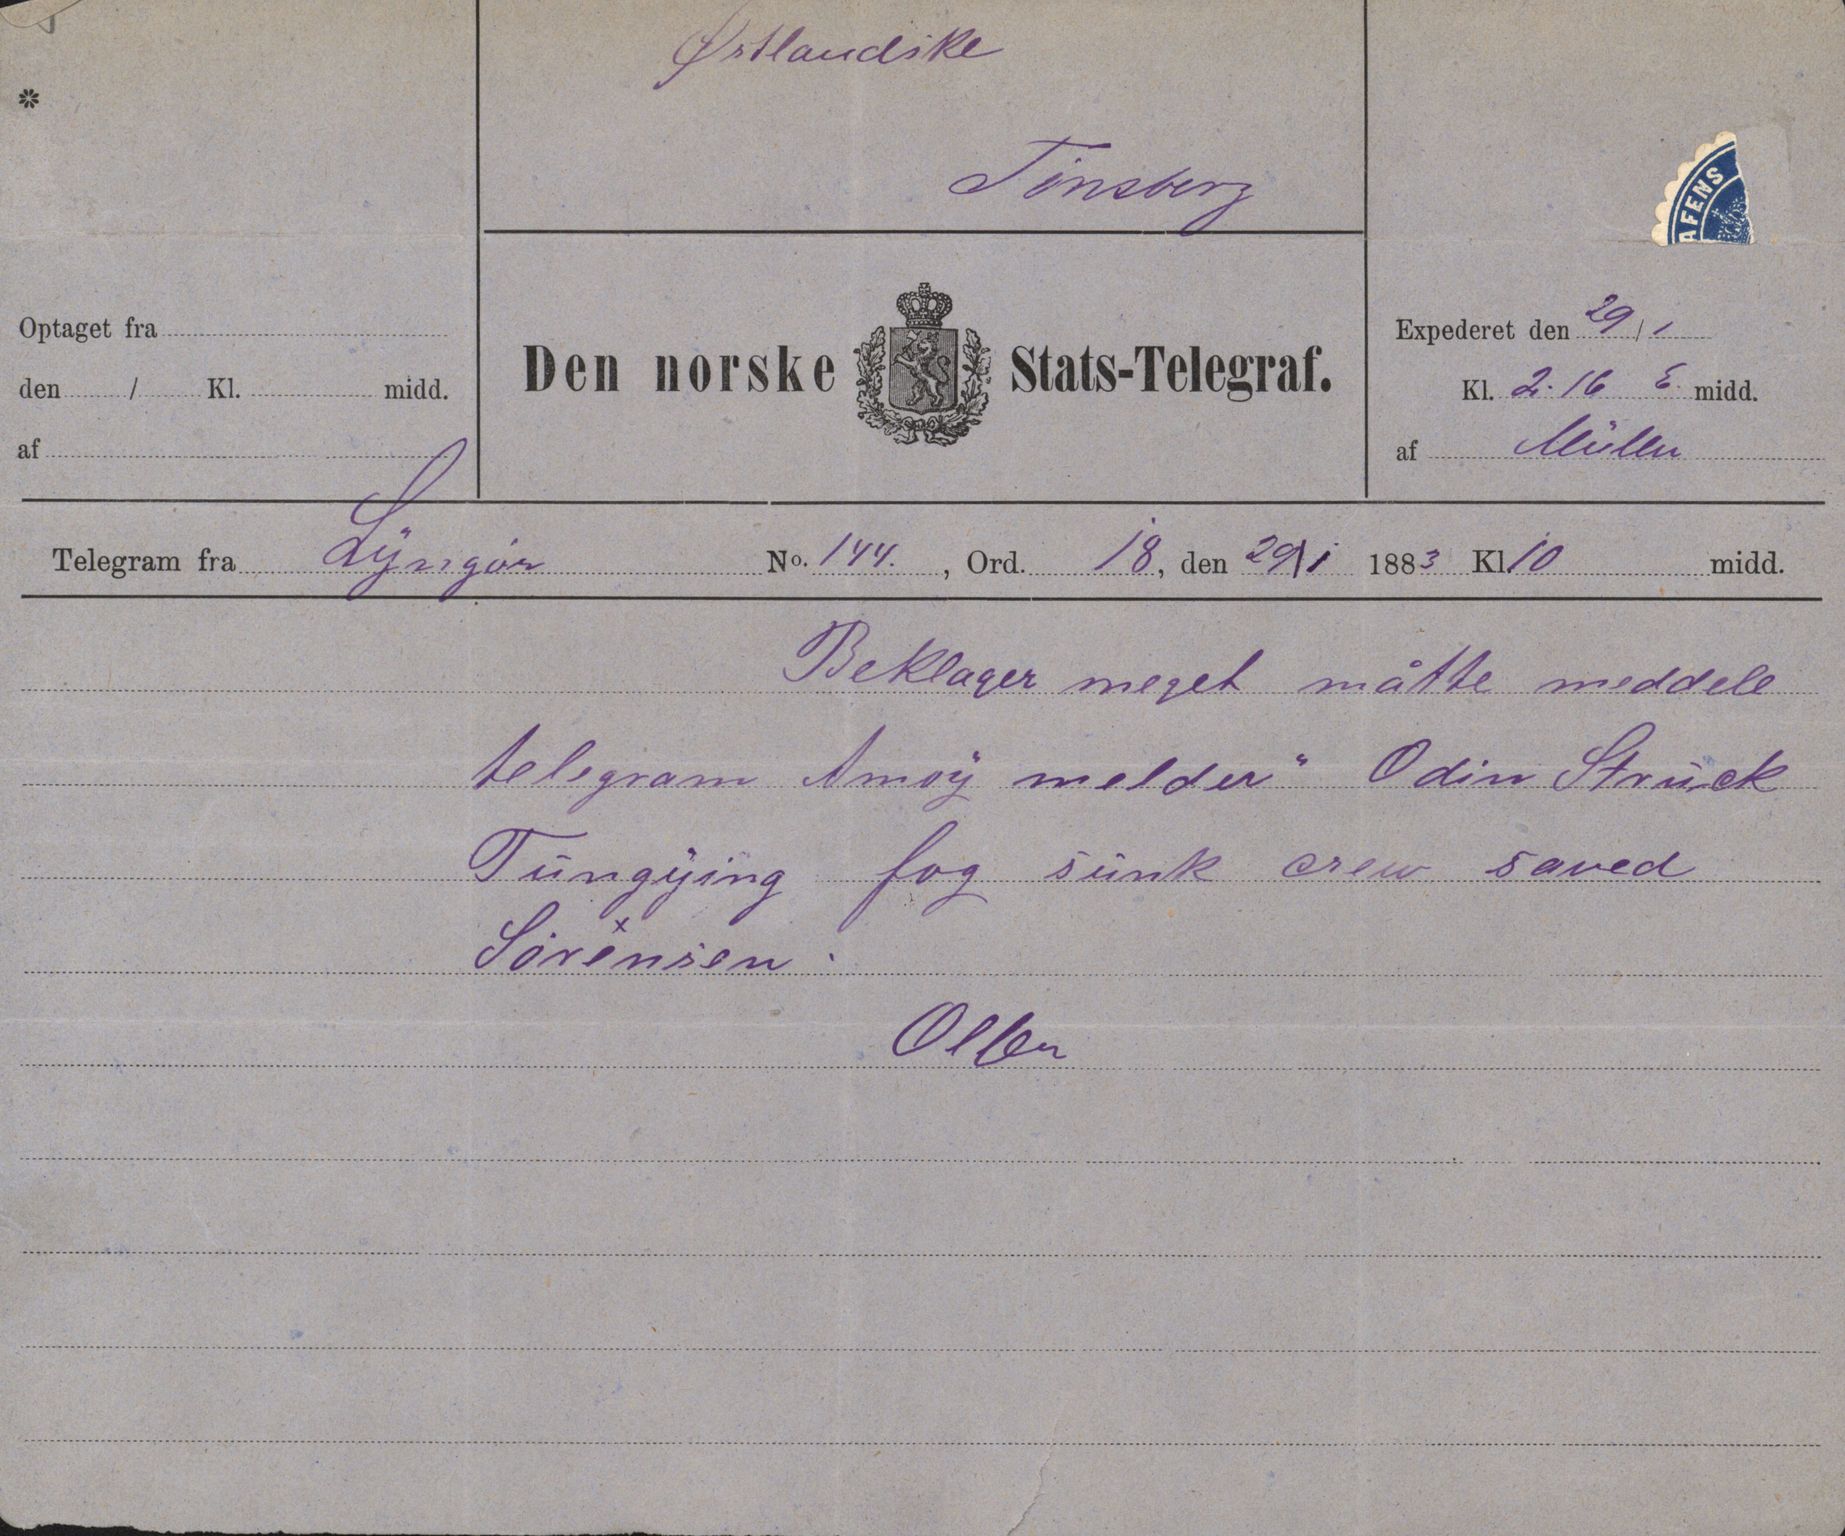 Østlandske
Tønsberg
*
AFENS
Optaget fra
den / Kl. midd.
af
Den norske Stats-Telegraf.
Expederet den 29/1
Kl. 2.16 E midd.
af Müller
Telegram fra Lyngör No. 144. , Ord. 18, den 29/1 1883 Kl 10 midd.
Beklager meget måtte meddele
telegram Amoÿ melder" Odin Strŭck
Tŭngÿing fog sŭnk crew saved
Sörensen.